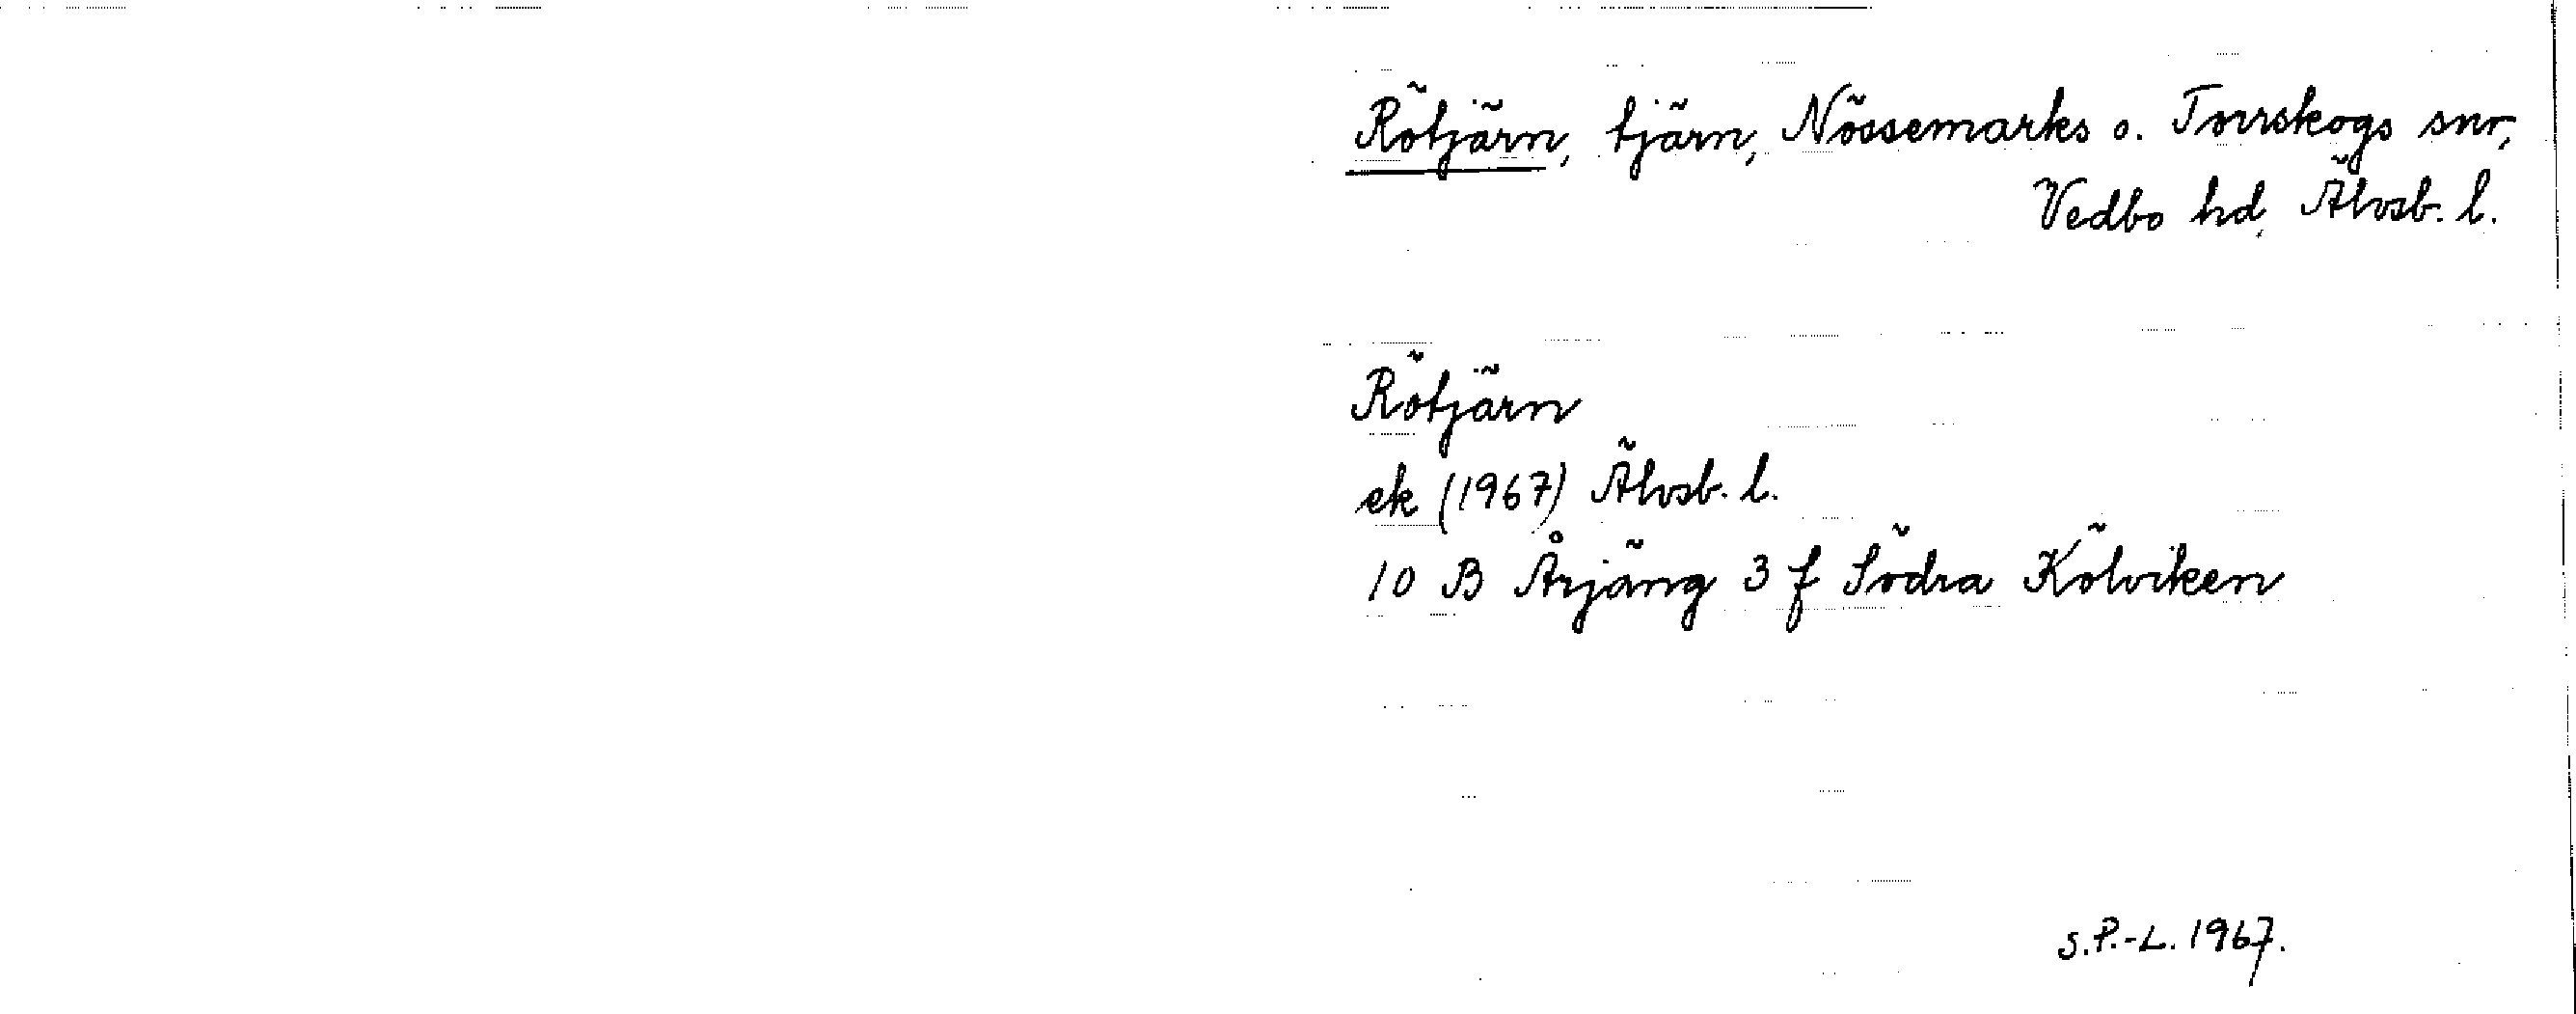 Rötjärn, tjärn, Nössemarks o. Torrskogs snr,
Vedbo hd, Älvsb. l.
Rötjärn
ek (1967) Älvsb. l.
10 B Årjäng 3 f Södra Kölviken
S.P.-L. 1967.